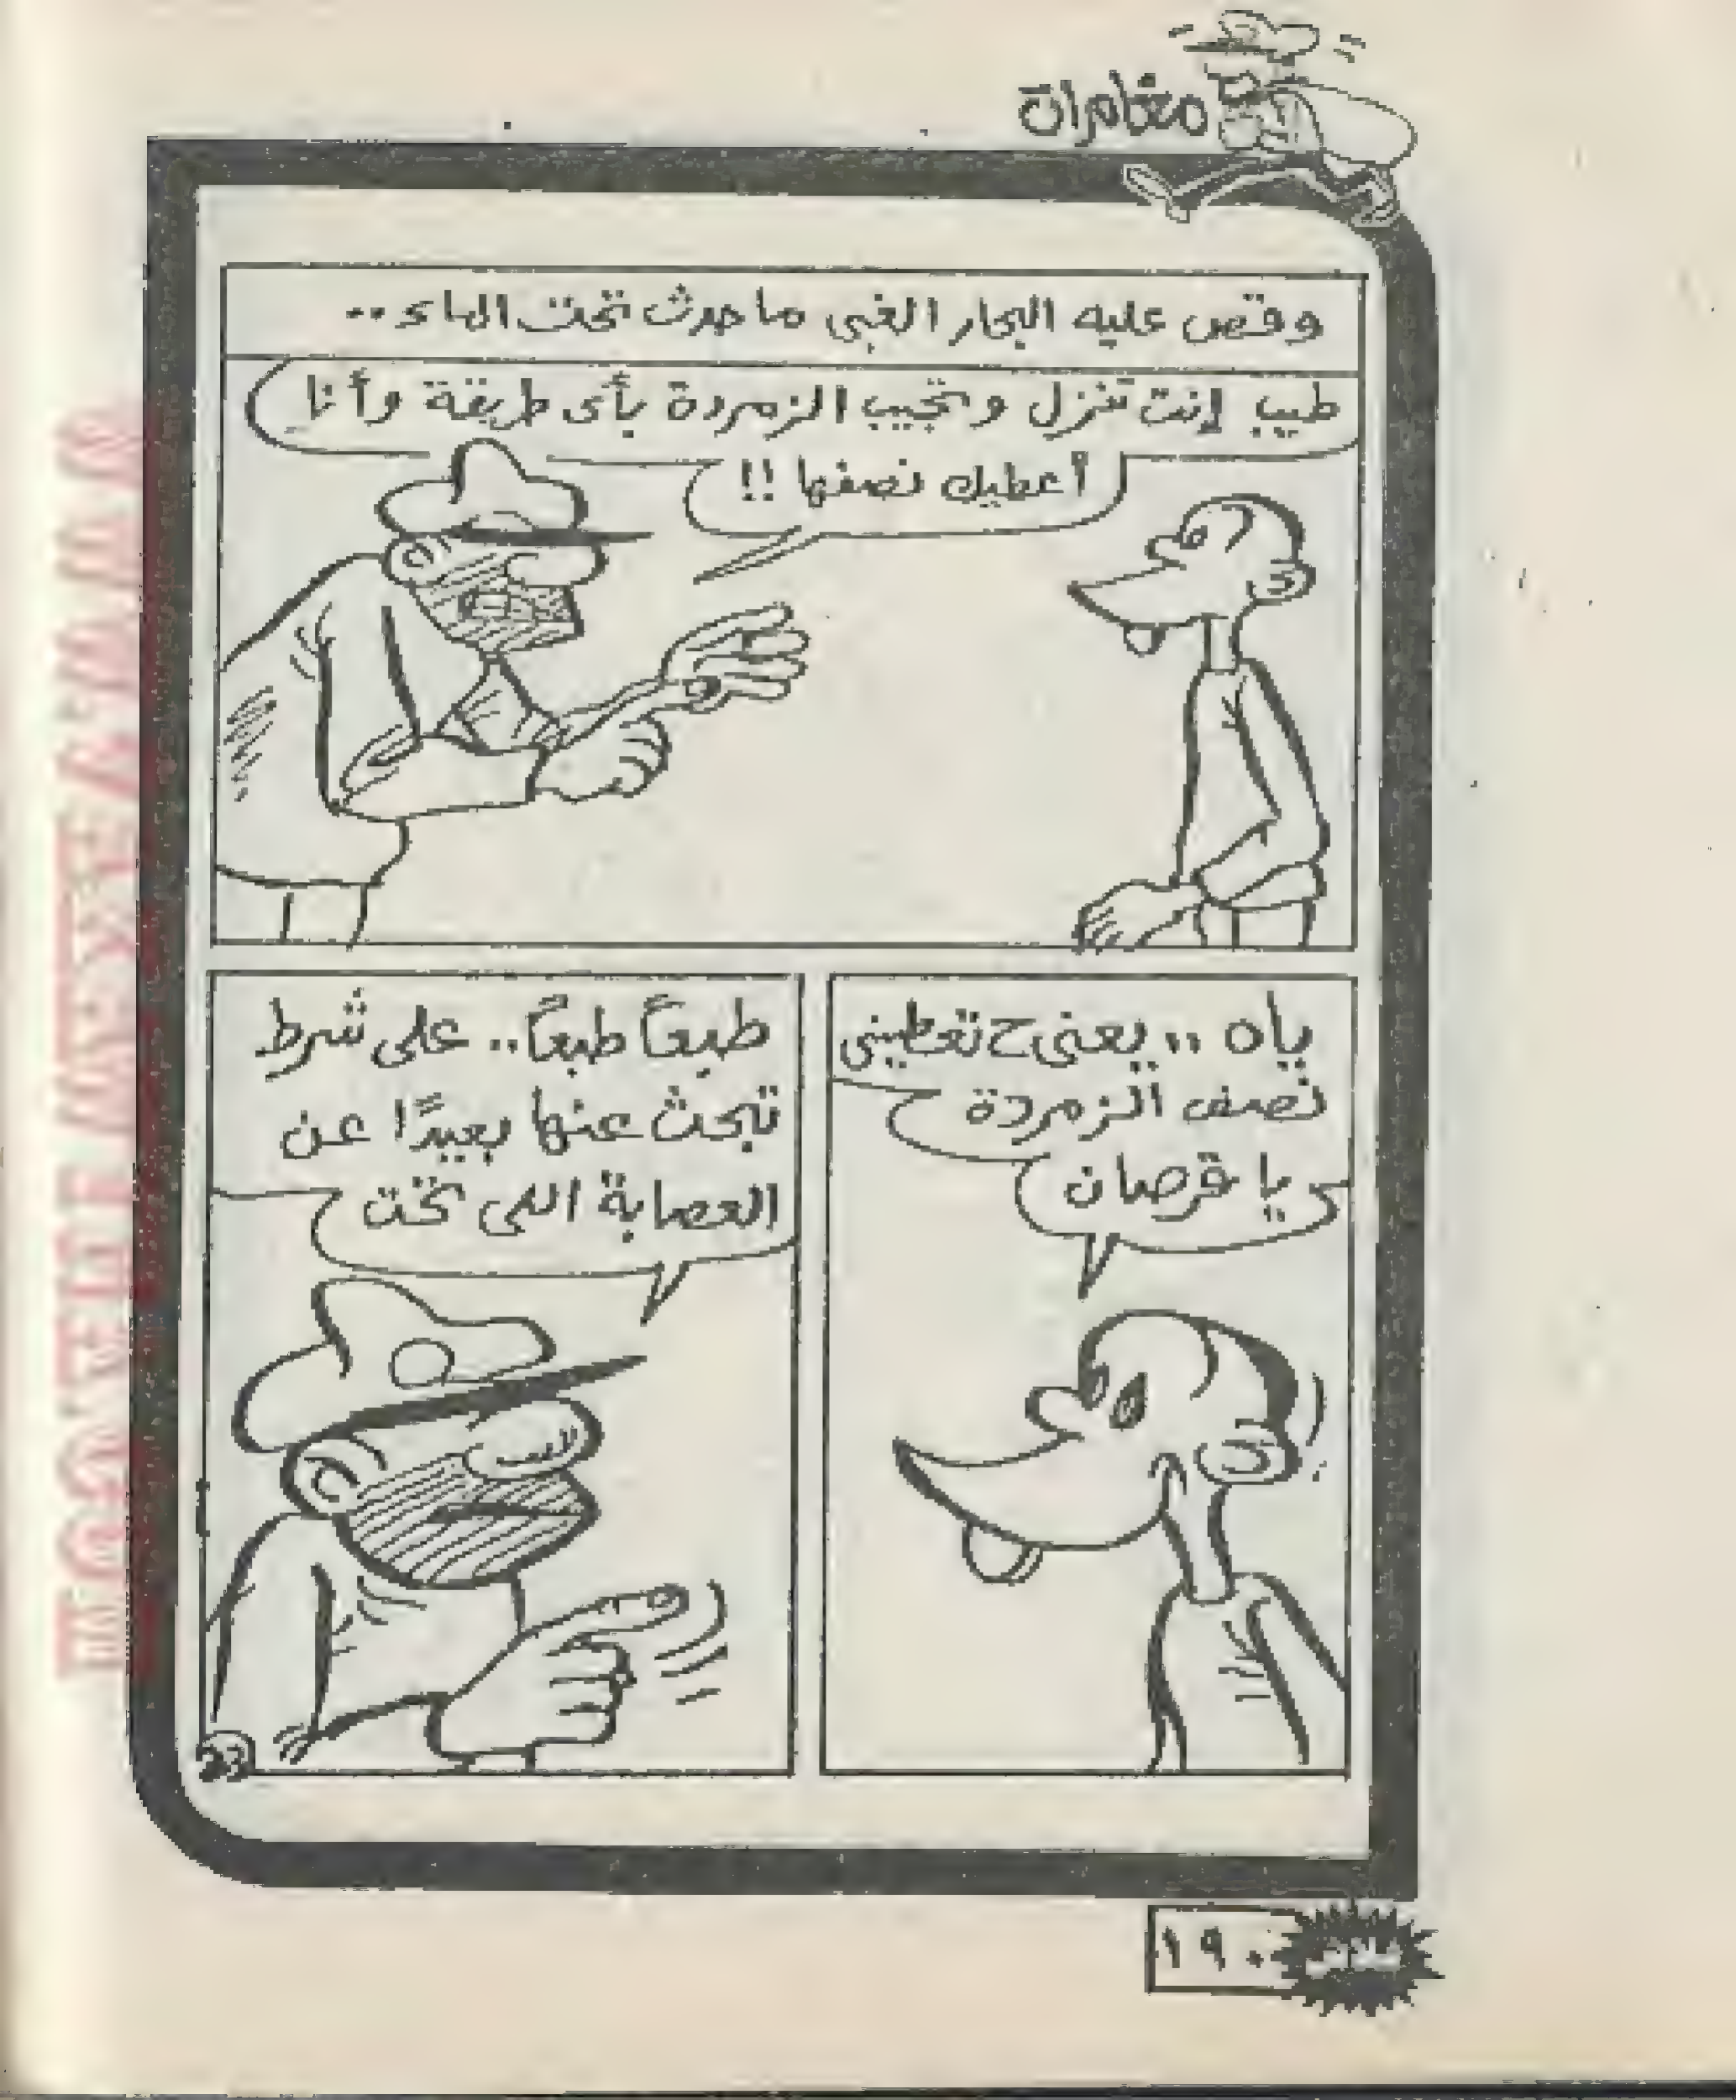 مغامرات
وقص عليه البحار الغبي ما حدث تحت الماء..
طيب إنت تنزل وتجيب الزمردة بأى طريقة وأنا
أعطيك نصفها !!
ياه .. يعنى ح تعطينى
نصف الزمردة
يا قرصان
طبعاً طبعاً.. على شرط
تبحث عنها بعيدًا عن
العصابة اللى تحت
23
١٩٠